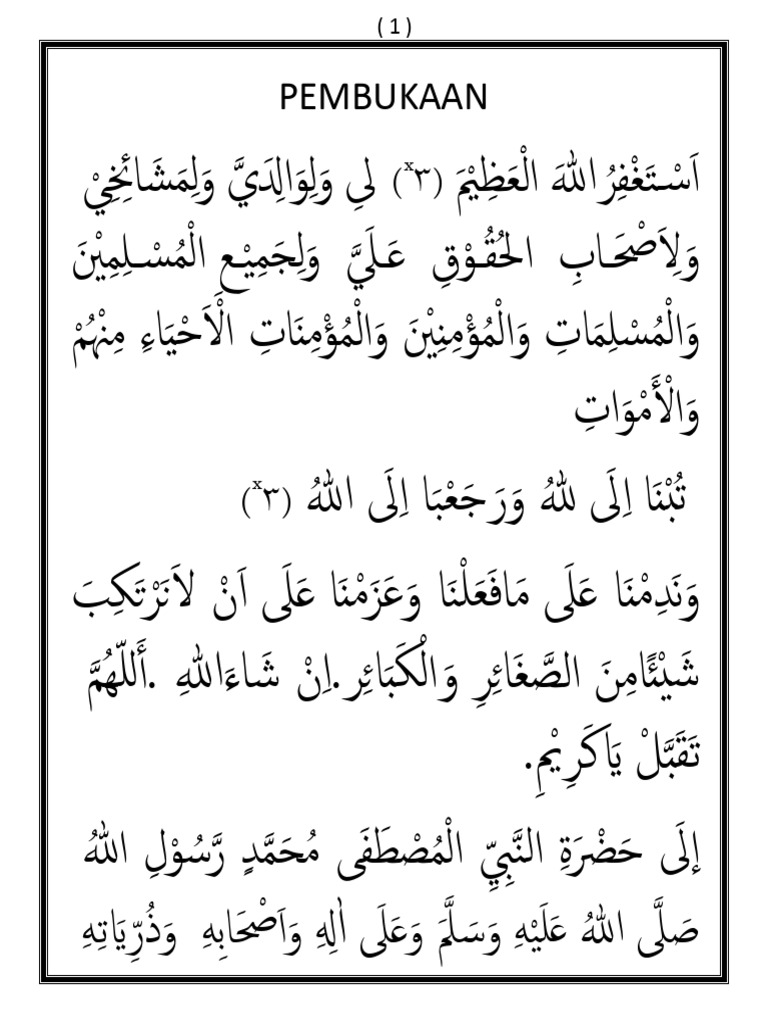 ( 1 )
PEMBUKAAN
اَسْتَغْفِرُ اللهَ الْعَظِيْمَ (٣x) لِي وَلِوَالِدَيَّ وَلِمَشَائِخِيْ
وَلِاَصْحَابِ الحُقُوْقِ عَلَيَّ وَلِجَمِيْعِ الْمُسْلِمِيْنَ
وَالْمُسْلِمَاتِ وَالْمُؤْمِنِيْنَ وَالْمُؤْمِنَاتِ الْاَحْيَاءِ مِنْهُمْ
وَالْأَمْوَاتِ
تُبْنَا اِلَى للهُ وَرَجَعْبَا اِلَى اللهُ (٣x)
وَنَدِمْنَا عَلَى مَافَعَلْنَا وَعَزَمْنَا عَلَى اَنْ لاَنَرْتَكِبَ
شَيْئًامِنَ الصَّغَائِرِ وَالْكَبَائِر.اِنْ شَاءَاللهِ .أَللّهُمَّ
تَقَبَّلْ يَاكَرِيْمِ.
إلَى حَضْرَةِ النَّبِيِّ الْمُصْطَفَى مُحَمَّدٍ رَّسُوْلِ اللهُ
صَلَّى اللهُ عَلَيْهِ وَسَلَّمَ وَعَلَى اٰلِهِ وَاَصْحَابِهِ وَذُرِّيَاتِهِ